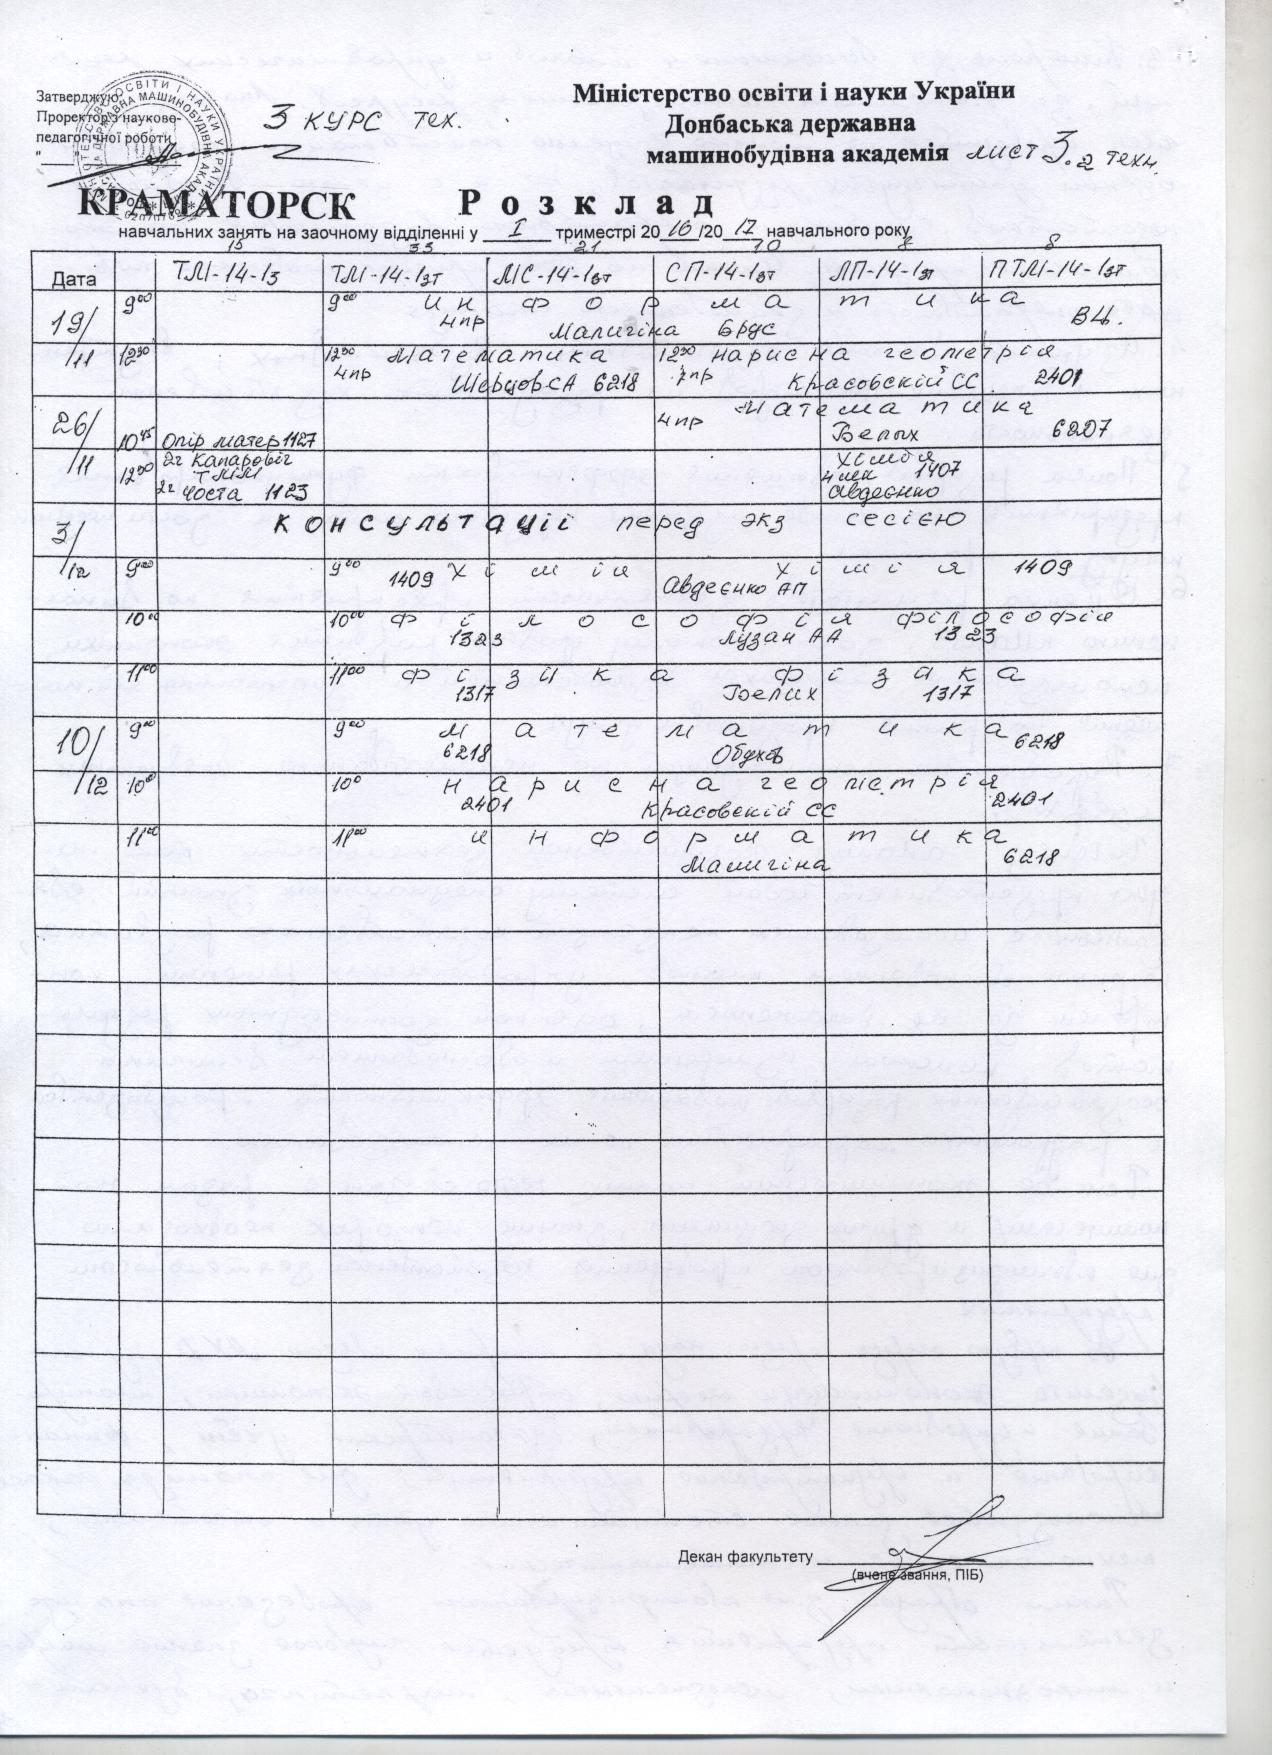 Затверджую
Проректор з науково-
педагогічної роботи
3 КУРС тех.
Міністерство освіти і науки України
Донбаська державна
машинобудівна академія лист 3.2 техн.
КРАМАТОРСК Розклад
навчальних занять на заочному відділенні у I триместрі 2016/2017 навчального року
15 33 21 10 8 8
Дата ТМ-14-1з ТМ-14-1зт МС-14-1зт СП-14-1зт ЛП-14-1зт ПТМ-14-1зт
19/11 9⁰⁰ 9⁰⁰ информатика
4пр Малигіна ВЦ.
12³⁰ 12³⁰ Математика 12³⁰ нарисна геометрія
4пр Шевцов СА 6218 Красовскій СС 2401
26/11 4пр Математика
10⁴⁵ Опір матер 1127 Белых 6207
2г Капаровіг хімія
12³⁰ ТММ 4лек 1407
2г Чоста 1123 Авдеєнко
3/12 КОНСУЛЬТАЦІЇ перед экз сесією
9⁰⁰ 9⁰⁰ хімія хімія 1409
1409 Авдеєнко АП
10⁰⁰ 10⁰⁰ філософія філософія
1323 Лузан АА 1323
11⁰⁰ 11⁰⁰ фізика фізика
1317 Белих 1317
10/12 9⁰⁰ 9⁰⁰ математика
6218 Обухов 6218
10⁰⁰ 10⁰⁰ нарисна геометрія
2401 Красовскій СС 2401
11⁰⁰ 11⁰⁰ информатика
Малигіна 6218
Декан факультету
(вчене звання, ПІБ)